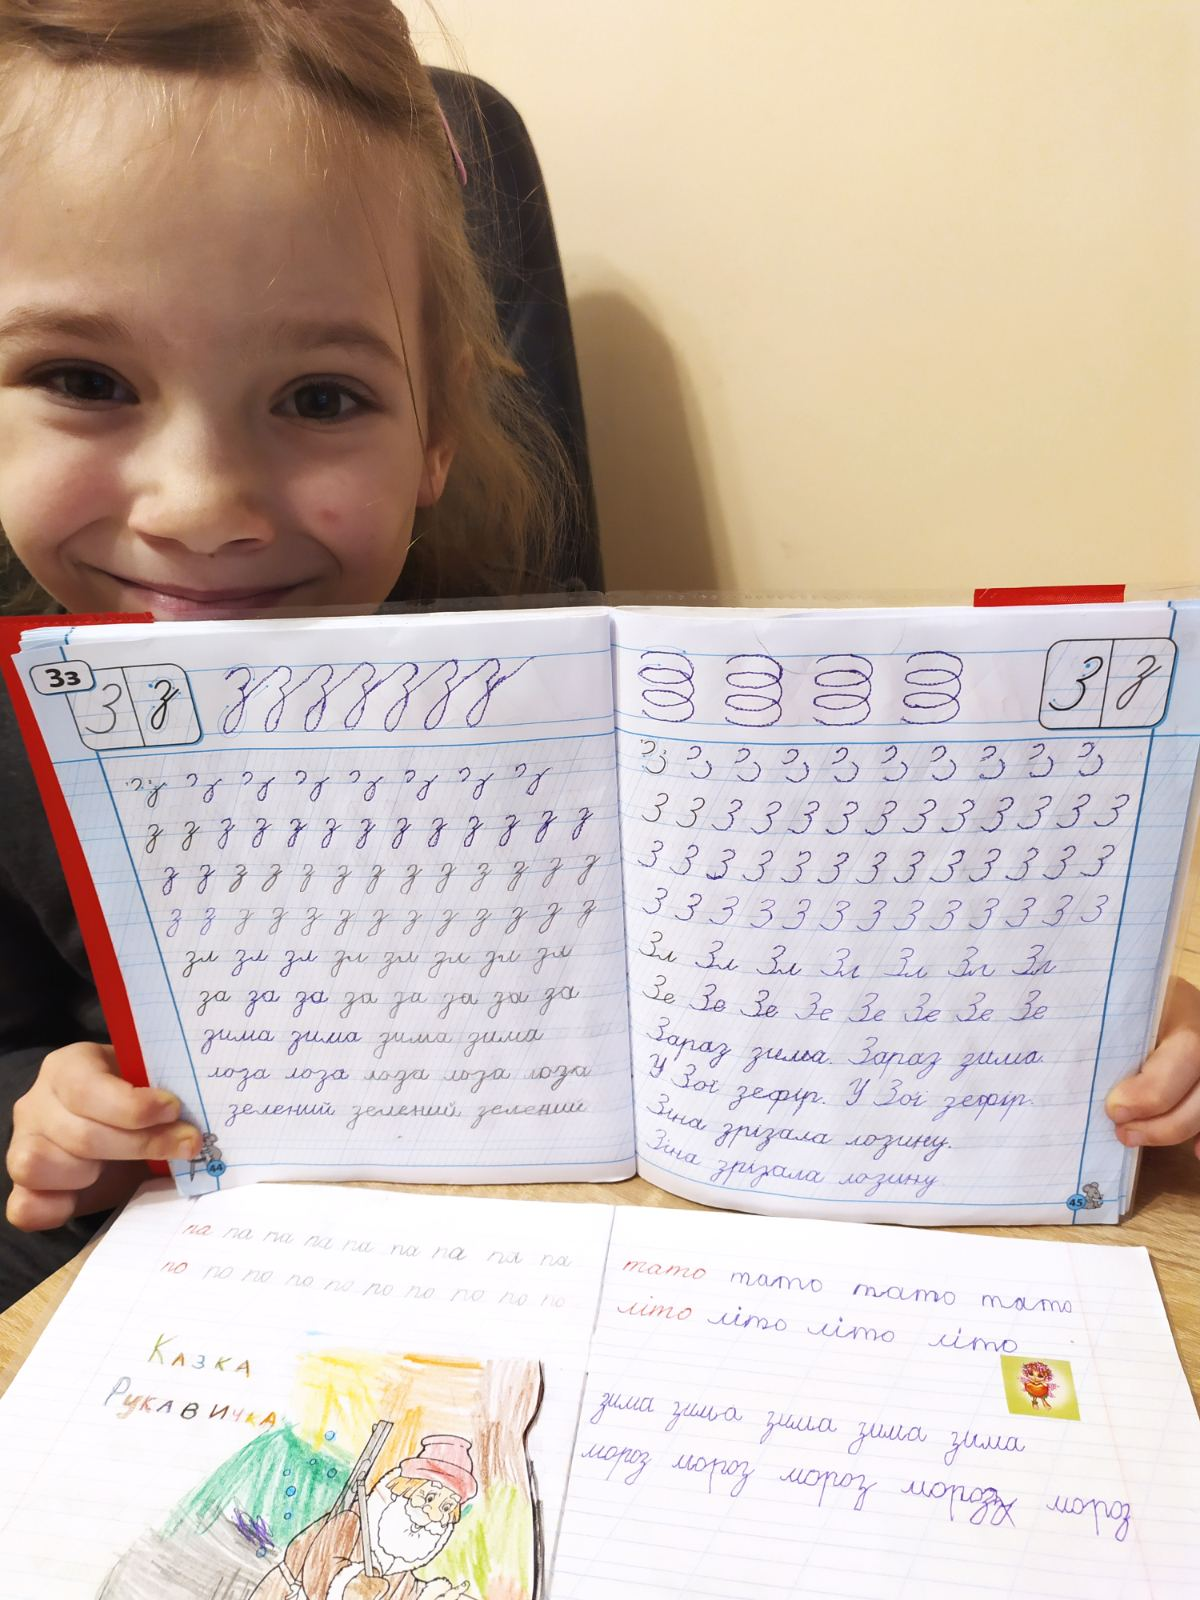 Зз
З з
з з з з з з з
з з з з з з з з з з з з з
з з з з з з з з з з з з з
з з з з з з з з з з з з з
зл зл зл зл зл зл зл зл
за за за за за за за за
зима зима зима зима
лоза лоза лоза лоза лоза
зелений зелений зелений
44
З з
З З З З З З З З З З З З З
З З З З З З З З З З З З З
З З З З З З З З З З З З З
Зл Зл Зл Зл Зл Зл Зл
Зе Зе Зе Зе Зе Зе Зе Зе
Зараз зима. Зараз зима.
У Зої зефір. У Зої зефір.
Зіна зрізала лозину.
Зіна зрізала лозину
45
па па па па па па па па па
по по по по по по по по по по
Казка
Рукавичка
тато тато тато тато
літо літо літо літо
зима зима зима зима зима
мороз мороз мороз мороз мороз